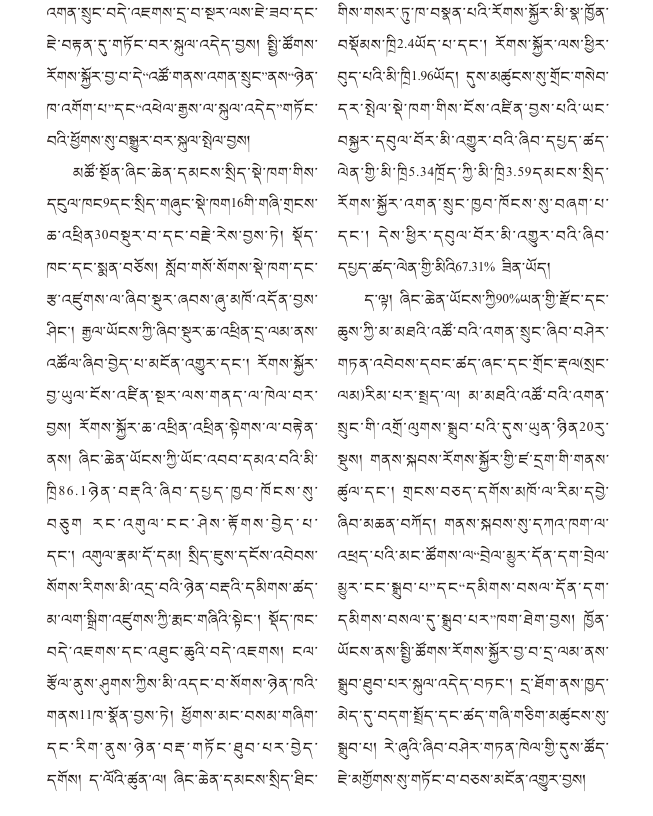 འགན་སྲུང་བདེ་འཇགས་དྲ་བ་སྔར་ལས་ཇེ་ཟབ་དང་
ཇེ་བརྟན་དུ་གཏོང་བར་སྐུལ་འདེད་བྱས། སྤྱི་ཚོགས་
རོགས་སྐྱོར་བྱ་བ་དེ་“འཚོ་གནས་འགན་སྲུང་”ནས་“ཉེན་
ཁ་འགོག་པ་”དང་“འཕེལ་རྒྱས་ལ་སྐུལ་འདེད་”གཏོང་
བའི་ཕྱོགས་སུ་བསྒྱུར་བར་སྐུལ་སྤེལ་བྱས།
མཚོ་སྔོན་ཞིང་ཆེན་དམངས་སྲིད་སྡེ་ཁག་གིས་
དངུལ་ཁང9དང་སྲིད་གཞུང་སྡེ་ཁག16གི་གཞི་གྲངས་
ཆ་འཕྲིན30བསྡུར་བ་དང་བརྗེ་རེས་བྱས་ཏེ། སྡོད་
ཁང་དང་སྨན་བཅོས། སློབ་གསོ་སོགས་སྡེ་ཁག་དང་
རྩ་འཛུགས་ལ་ཞིབ་སྡུར་ཞབས་ཞུ་མཁོ་འདོན་བྱས་
ཤིང་། རྒྱལ་ཡོངས་ཀྱི་ཞིབ་སྡུར་ཆ་འཕྲིན་དྲ་ལམ་ནས་
འཚོལ་ཞིབ་བྱེད་པ་མངོན་འགྱུར་དང་། རོགས་སྐྱོར་
བྱ་ཡུལ་ངོས་འཛིན་སྔར་ལས་གནད་ལ་ཁེལ་བར་
བྱས། རོགས་སྐྱོར་ཆ་འཕྲིན་འཕྲིན་སྟེགས་ལ་བརྟེན་
ནས། ཞིང་ཆེན་ཡོངས་ཀྱི་ཡོང་འབབ་དམའ་བའི་མི་
ཁྲི86.1ཉེན་བརྡའི་ཞིབ་དཔྱད་ཁྱབ་ཁོངས་སུ་
བཅུག རང་འགུལ་ངང་ཤེས་རྟོགས་བྱེད་པ་
དང་། འགུལ་རྣམ་དོ་དམ། སྲིད་ཇུས་དངོས་འབེབས་
སོགས་རིགས་མི་འདྲ་བའི་ཉེན་བརྡའི་དམིགས་ཚད་
མ་ལག་སྒྲིག་འཛུགས་ཀྱི་རྨང་གཞིའི་སྟེང་། སྡོད་ཁང་
བདེ་འཇགས་དང་འཐུང་ཆུའི་བདེ་འཇགས། ངལ་
རྩོལ་ནུས་ཤུགས་ཀྱིས་མི་འདང་བ་སོགས་ཉེན་ཁའི་
གནས11ཁ་སྣོན་བྱས་ཏེ། ཕྱོགས་མང་བསམ་གཞིག་
དང་རིག་ནུས་ཉེན་བརྡ་གཏོང་ཐུབ་པར་བྱེད་
དགོས། ད་ལོའི་ཚུན་ལ། ཞིང་ཆེན་དམངས་སྲིད་ཐིང་
གིས་གསར་དུ་ཁ་བསྣན་པའི་རོགས་སྐྱོར་མི་སྣ་ཁྱོན་
བསྡོམས་ཁྲི2.4ཡོད་པ་དང་། རོགས་སྐྱོར་ལས་ཕྱིར་
བུད་པའི་མི་ཁྲི1.96ཡོད། དུས་མཚུངས་སུ་གྲོང་གསེབ་
དར་སྤེལ་སྡེ་ཁག་གིས་ངོས་འཛིན་བྱས་པའི་ཡང་
བསྐྱར་དབུལ་བོར་མི་འགྱུར་བའི་ཞིབ་དཔྱད་ཚད་
ལེན་གྱི་མི་ཁྲི5.34ཁྲོད་ཀྱི་མི་ཁྲི3.59དམངས་སྲིད་
རོགས་སྐྱོར་འགན་སྲུང་ཁྱབ་ཁོངས་སུ་བཞག་པ་
དང་། དེས་ཕྱིར་དབུལ་བོར་མི་འགྱུར་བའི་ཞིབ་
དཔྱད་ཚད་ལེན་གྱི་མིའི67.31% ཟིན་ཡོད།
ད་ལྟ། ཞིང་ཆེན་ཡོངས་ཀྱི90%ཡན་གྱི་རྫོང་དང་
ཆུས་ཀྱི་མ་མཐའི་འཚོ་བའི་འགན་སྲུང་ཞིབ་བཤེར་
གཏན་འབེབས་དབང་ཚད་ཞང་དང་གྲོང་རྡལ(སྲང་
ལམ)རིམ་པར་སྤྲད་ལ། མ་མཐའི་འཚོ་བའི་འགན་
སྲུང་གི་འགྲོ་ལུགས་སྒྲུབ་པའི་དུས་ཡུན་ཉིན20རུ་
སྡུས། གནས་སྐབས་རོགས་སྐྱོར་གྱི་ཛ་དྲག་གི་གནས་
ཚུལ་དང་། གྲངས་བཅད་དགོས་མཁོ་ལ་རིམ་དབྱེ་
ཞིབ་མཆན་བཀོད། གནས་སྐབས་སུ་དཀའ་ཁག་ལ་
འཕྲད་པའི་མང་ཚོགས་ལ་“བྲེལ་མྱུར་དོན་དག་བྲེལ་
མྱུར་ངང་སྒྲུབ་པ་”དང་“དམིགས་བསལ་དོན་དག་
དམིགས་བསལ་དུ་སྒྲུབ་པར་”ཁག་ཐེག་བྱས། ཁྱོན་
ཡོངས་ནས་སྤྱི་ཚོགས་རོགས་སྐྱོར་བྱ་བ་དྲ་ལམ་ནས་
སྒྲུབ་ཐུབ་པར་སྐུལ་འདེད་བཏང་། དྲ་ཐོག་ནས་ཁྱད་
མེད་དུ་བདག་སྤྲོད་དང་ཚད་གཞི་གཅིག་མཚུངས་སུ་
སྒྲུབ་པ། རེ་ཞུའི་ཞིབ་བཤེར་གཏན་ཁེལ་གྱི་དུས་ཚོད་
ཇེ་མགྱོགས་སུ་གཏོང་བ་བཅས་མངོན་འགྱུར་བྱས།